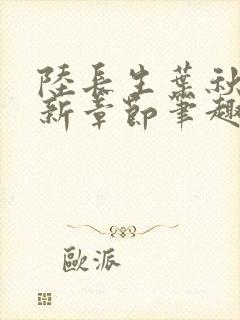 陸長生葉秋
新章節筆趣
歐派